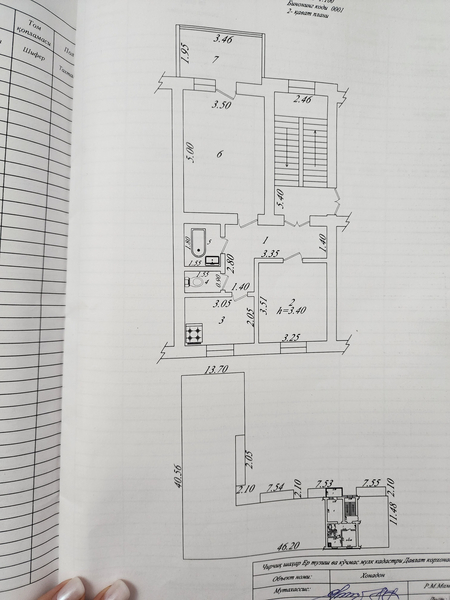 Том
қопламаси
Шифер
1:100
Бинонинг коди 0001
2- қават плани
3.46
1.95
7
3.50
2.46
5.00
6
5.40
1.80
5
1.55
2.80
1
3.35
1.40
1.55
4
0.90
1.40
3.05
3
2.05
3.51
2
h=3.40
3.25
13.70
40.56
2.05
2.10
7.54
2.10
7.53
7.55
2.10
11.48
46.20
Чирчиқ шаҳар Ер тузиш ва кўчмас мулк кадастри Давлат корхона
Объект номи:
Хонадон
Мутахассис:
Р.М.Мам